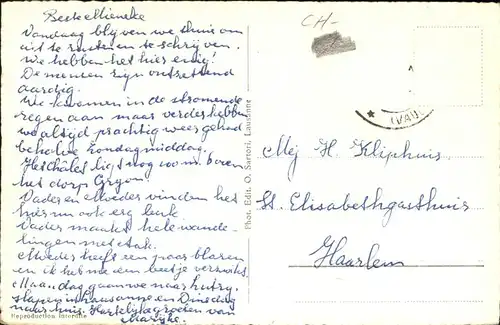 Beste Mieneke
Vandaag blijven we thuis om
uit te rusten en te schrijven.
We hebben het hier enig!
De mensen zijn ontzettend
aardig.
We kwamen in de stromende
regen aan maar verder hebben
we altijd prachtig weer gehad
behalve Zondagmiddag.
Het Châlet ligt nog 100 m. boven
het dorp Gryon.
Vader en Moeder vinden het
hier nu ook erg leuk.
Vader maakt hele wande-
lingen met
Moeder heeft een paar blaren
en ik heb me een beetje
Maandag gaan we naar Lutry.
slapen in Lausanne en Dinsdag
naar huis. Hartelijke groeten van
Marijke.
Reproduction interdite
Phot. Edit. O. Sartori, Lausanne
CH-
(VAUD
Mej. H. Kliphuis
St. Elisabethgasthuis
Haarlem